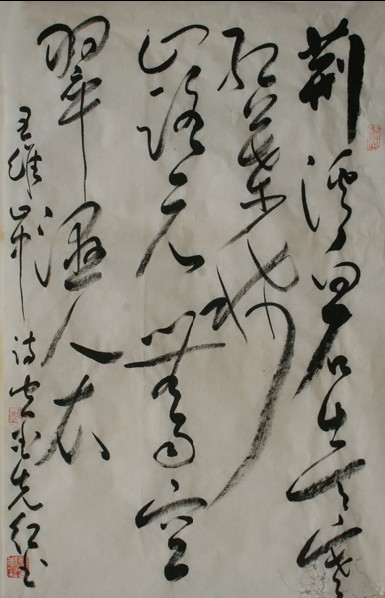 荆溪白石出天寒
红葉稀
山路元無雨空
翠濕人衣
王維山中诗